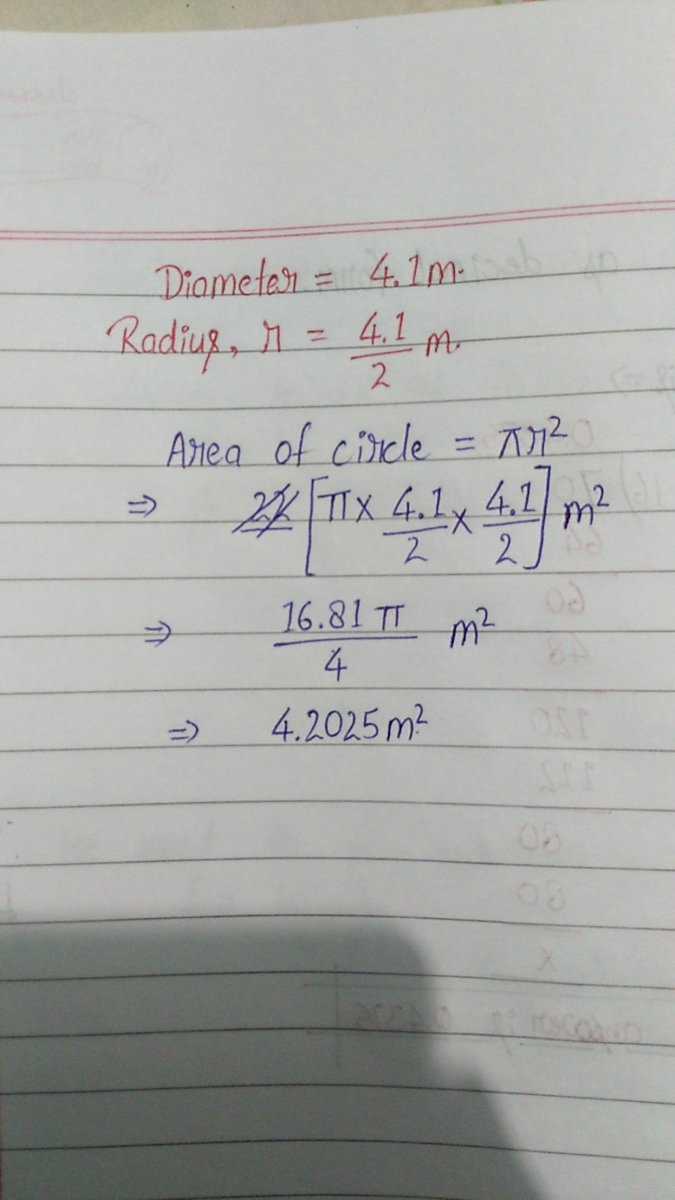 Diameter = 4.1m.
Radius, r = 4.1/2 m.
Area of circle = πr²
⇒ [π× 4.1/2 × 4.1/2] m²
⇒ 16.81 π/4 m²
⇒ 4.2025m²